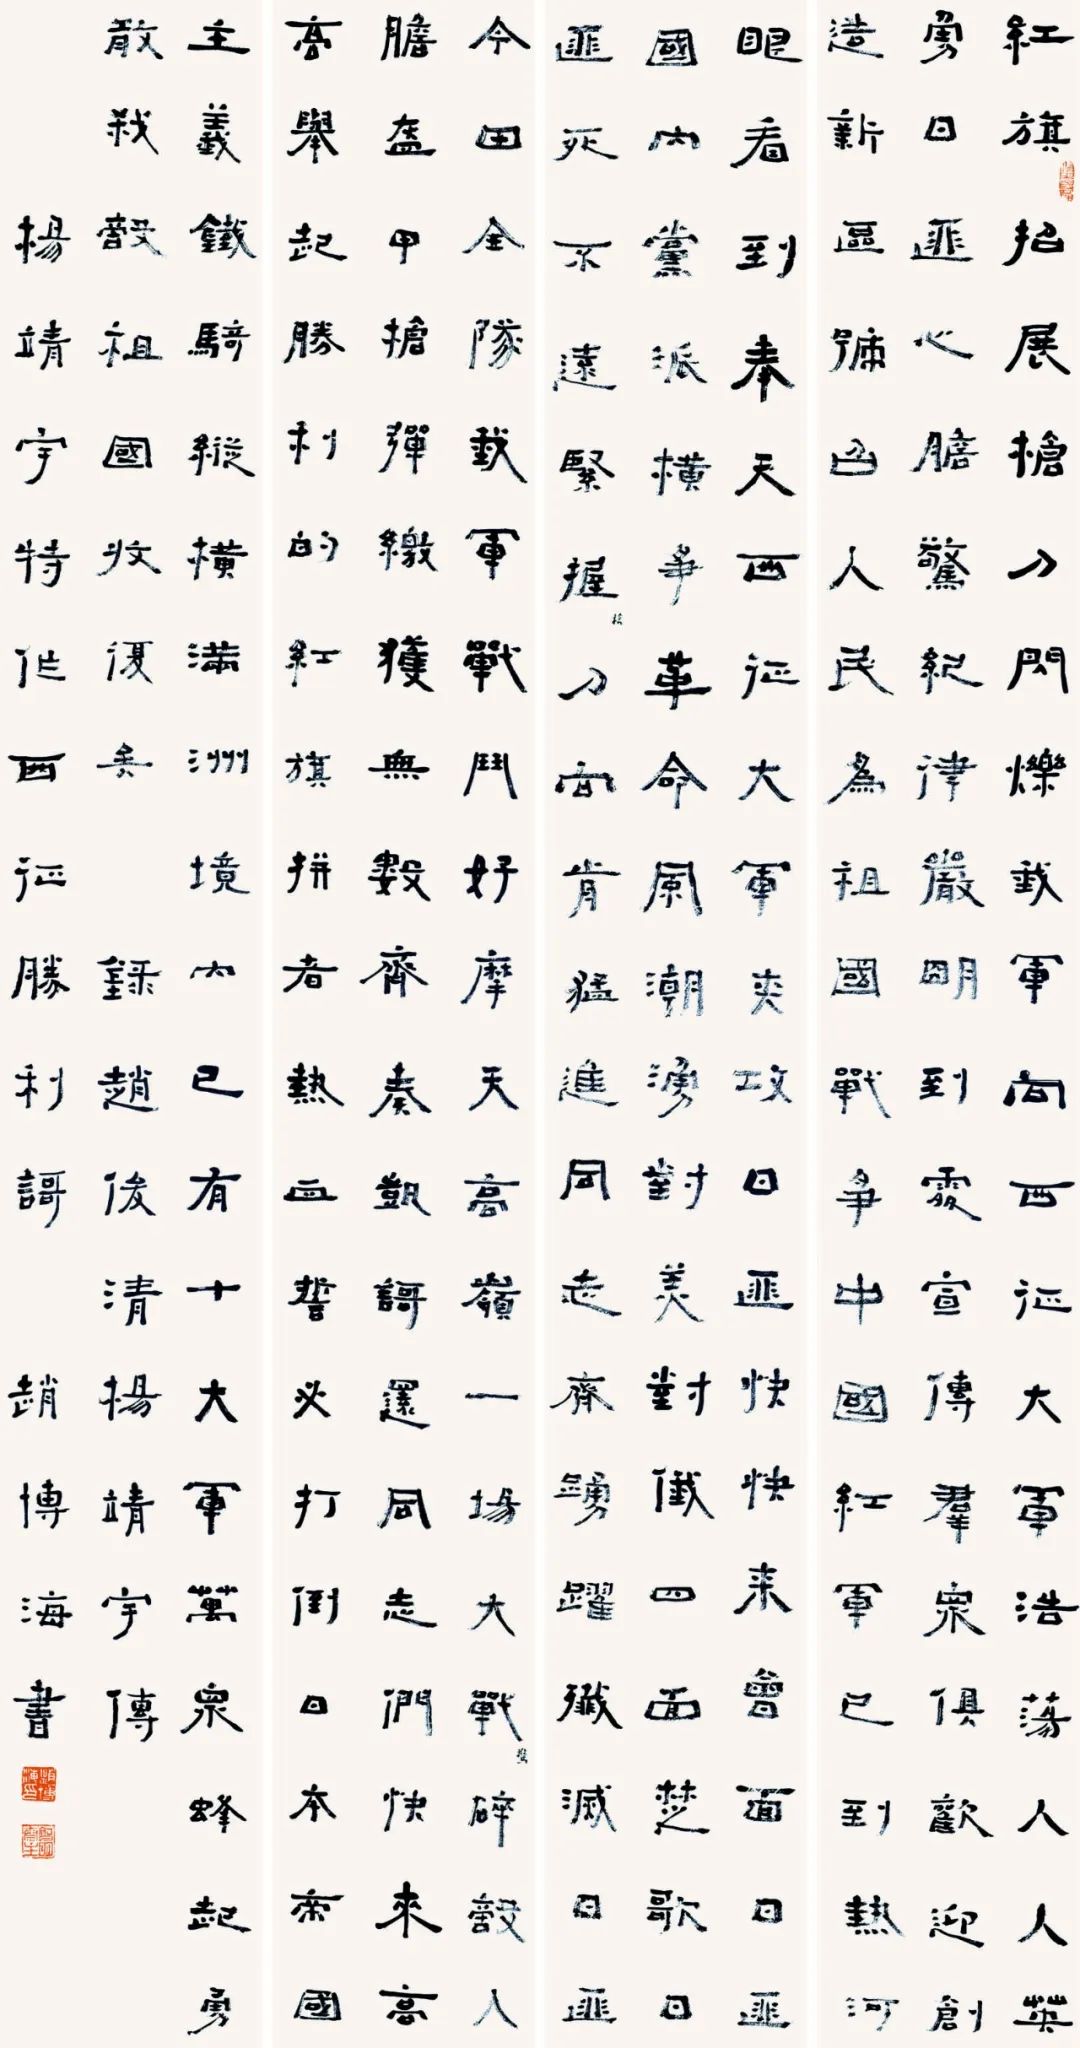 紅旗招展槍刀閃爍我軍向西征大軍浩蕩人人英
勇日匪心膽驚紀律嚴明到處宣傳羣衆俱歡迎創
造新區號召人民為祖國戰爭中國紅軍已到熱河
眼看到奉天西征大軍夾攻日匪快快來會面日匪
國内黨派橫爭革命風潮湧對美對俄四面楚歌日
匪死不遠緊握刀向前猛進同志齊踴躍殲滅日匪
槍
今日全隊我軍戰鬥好摩天高嶺一場大戰碎敵人
膽盔甲槍彈繳獲無數齊奏凱謌還同志們快來高
高舉起勝利的紅旗拼著熱血誓必打倒日本帝國
主義鐵騎縱橫滿洲境内已有十大軍萬衆蜂起勇
敢殺敵祖國收復矣 錄趙俊清楊靖宇傳
楊靖宇特作西征勝利謌 趙博海書